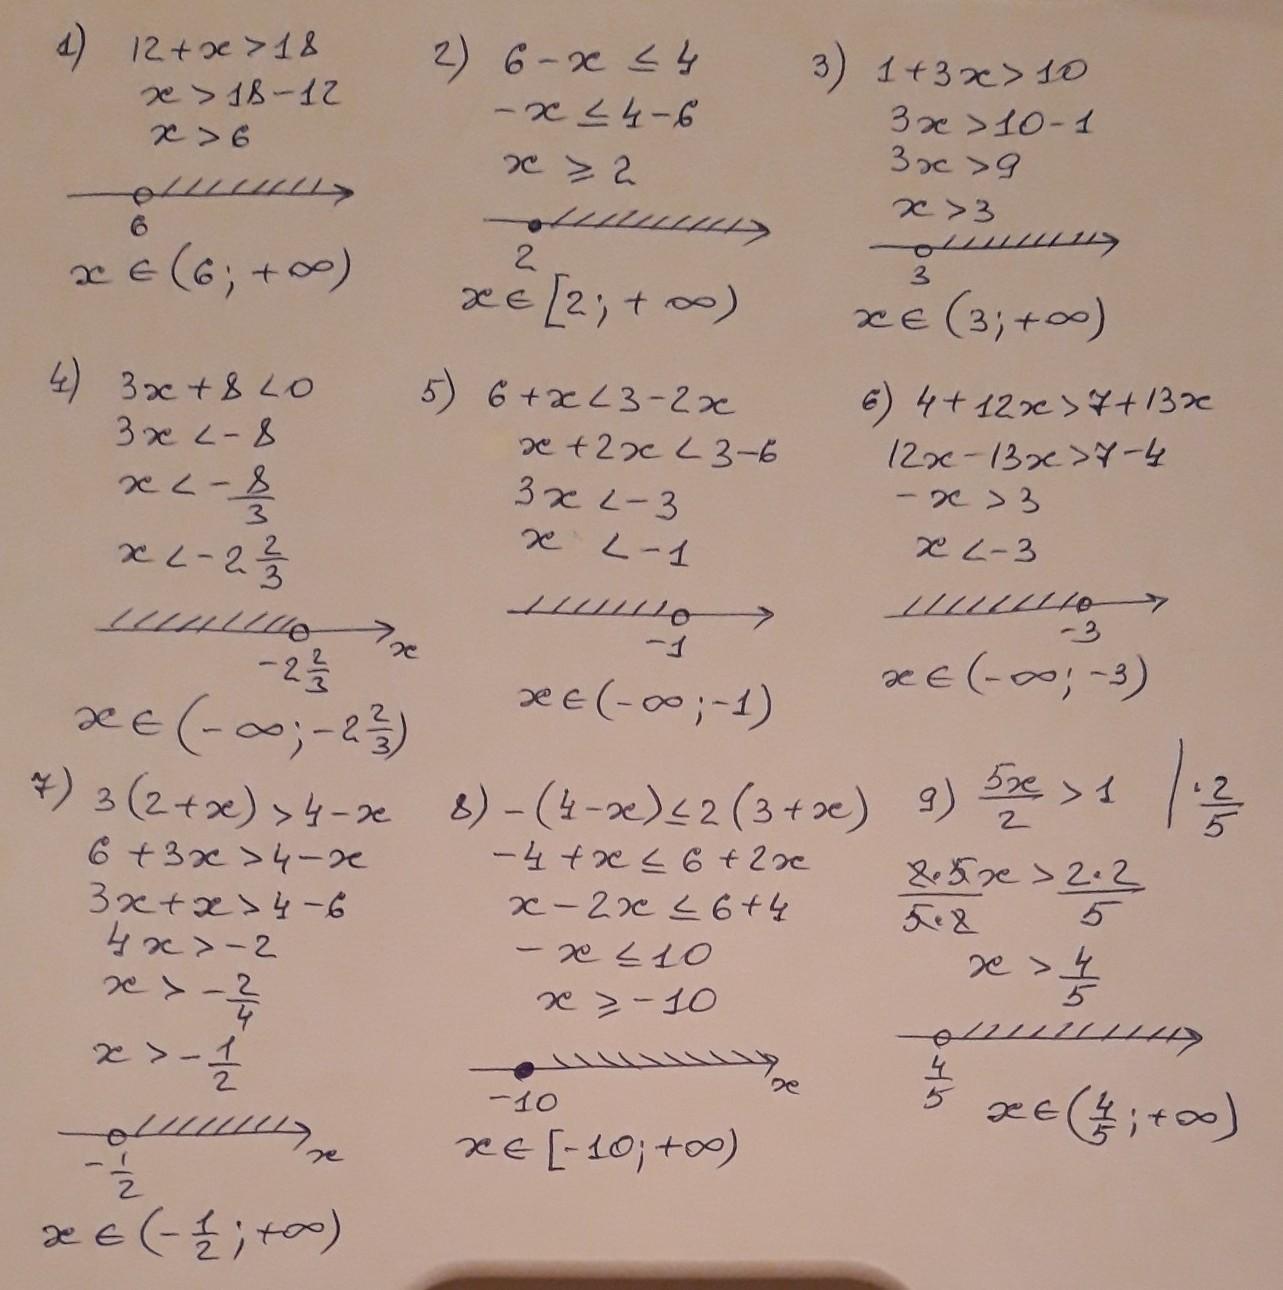 1) 12+x>18
x>18-12
x>6
6
x∈(6;+∞)
2) 6-x≤4
-x≤4-6
x≥2
2
x∈[2;+∞)
3) 1+3x>10
3x>10-1
3x>9
x>3
3
x∈(3;+∞)
4) 3x+8<0
3x<-8
x<-8/3
x<-2 2/3
-2 2/3 x
x∈(-∞;-2 2/3)
5) 6+x<3-2x
x+2x<3-6
3x<-3
x<-1
-1
x∈(-∞;-1)
6) 4+12x>7+13x
12x-13x>7-4
-x>3
x<-3
-3
x∈(-∞;-3)
7) 3(2+x)>4-x
6+3x>4-x
3x+x>4-6
4x>-2
x>-2/4
x>-1/2
-1/2 x
x∈(-1/2;+∞)
8) -(4-x)≤2(3+x)
-4+x≤6+2x
x-2x≤6+4
-x≤10
x≥-10
-10 x
x∈[-10;+∞)
9) 5x/2>1 |·2/5
2·5x/5·2>2·2/5
x>4/5
4/5
x∈(4/5;+∞)